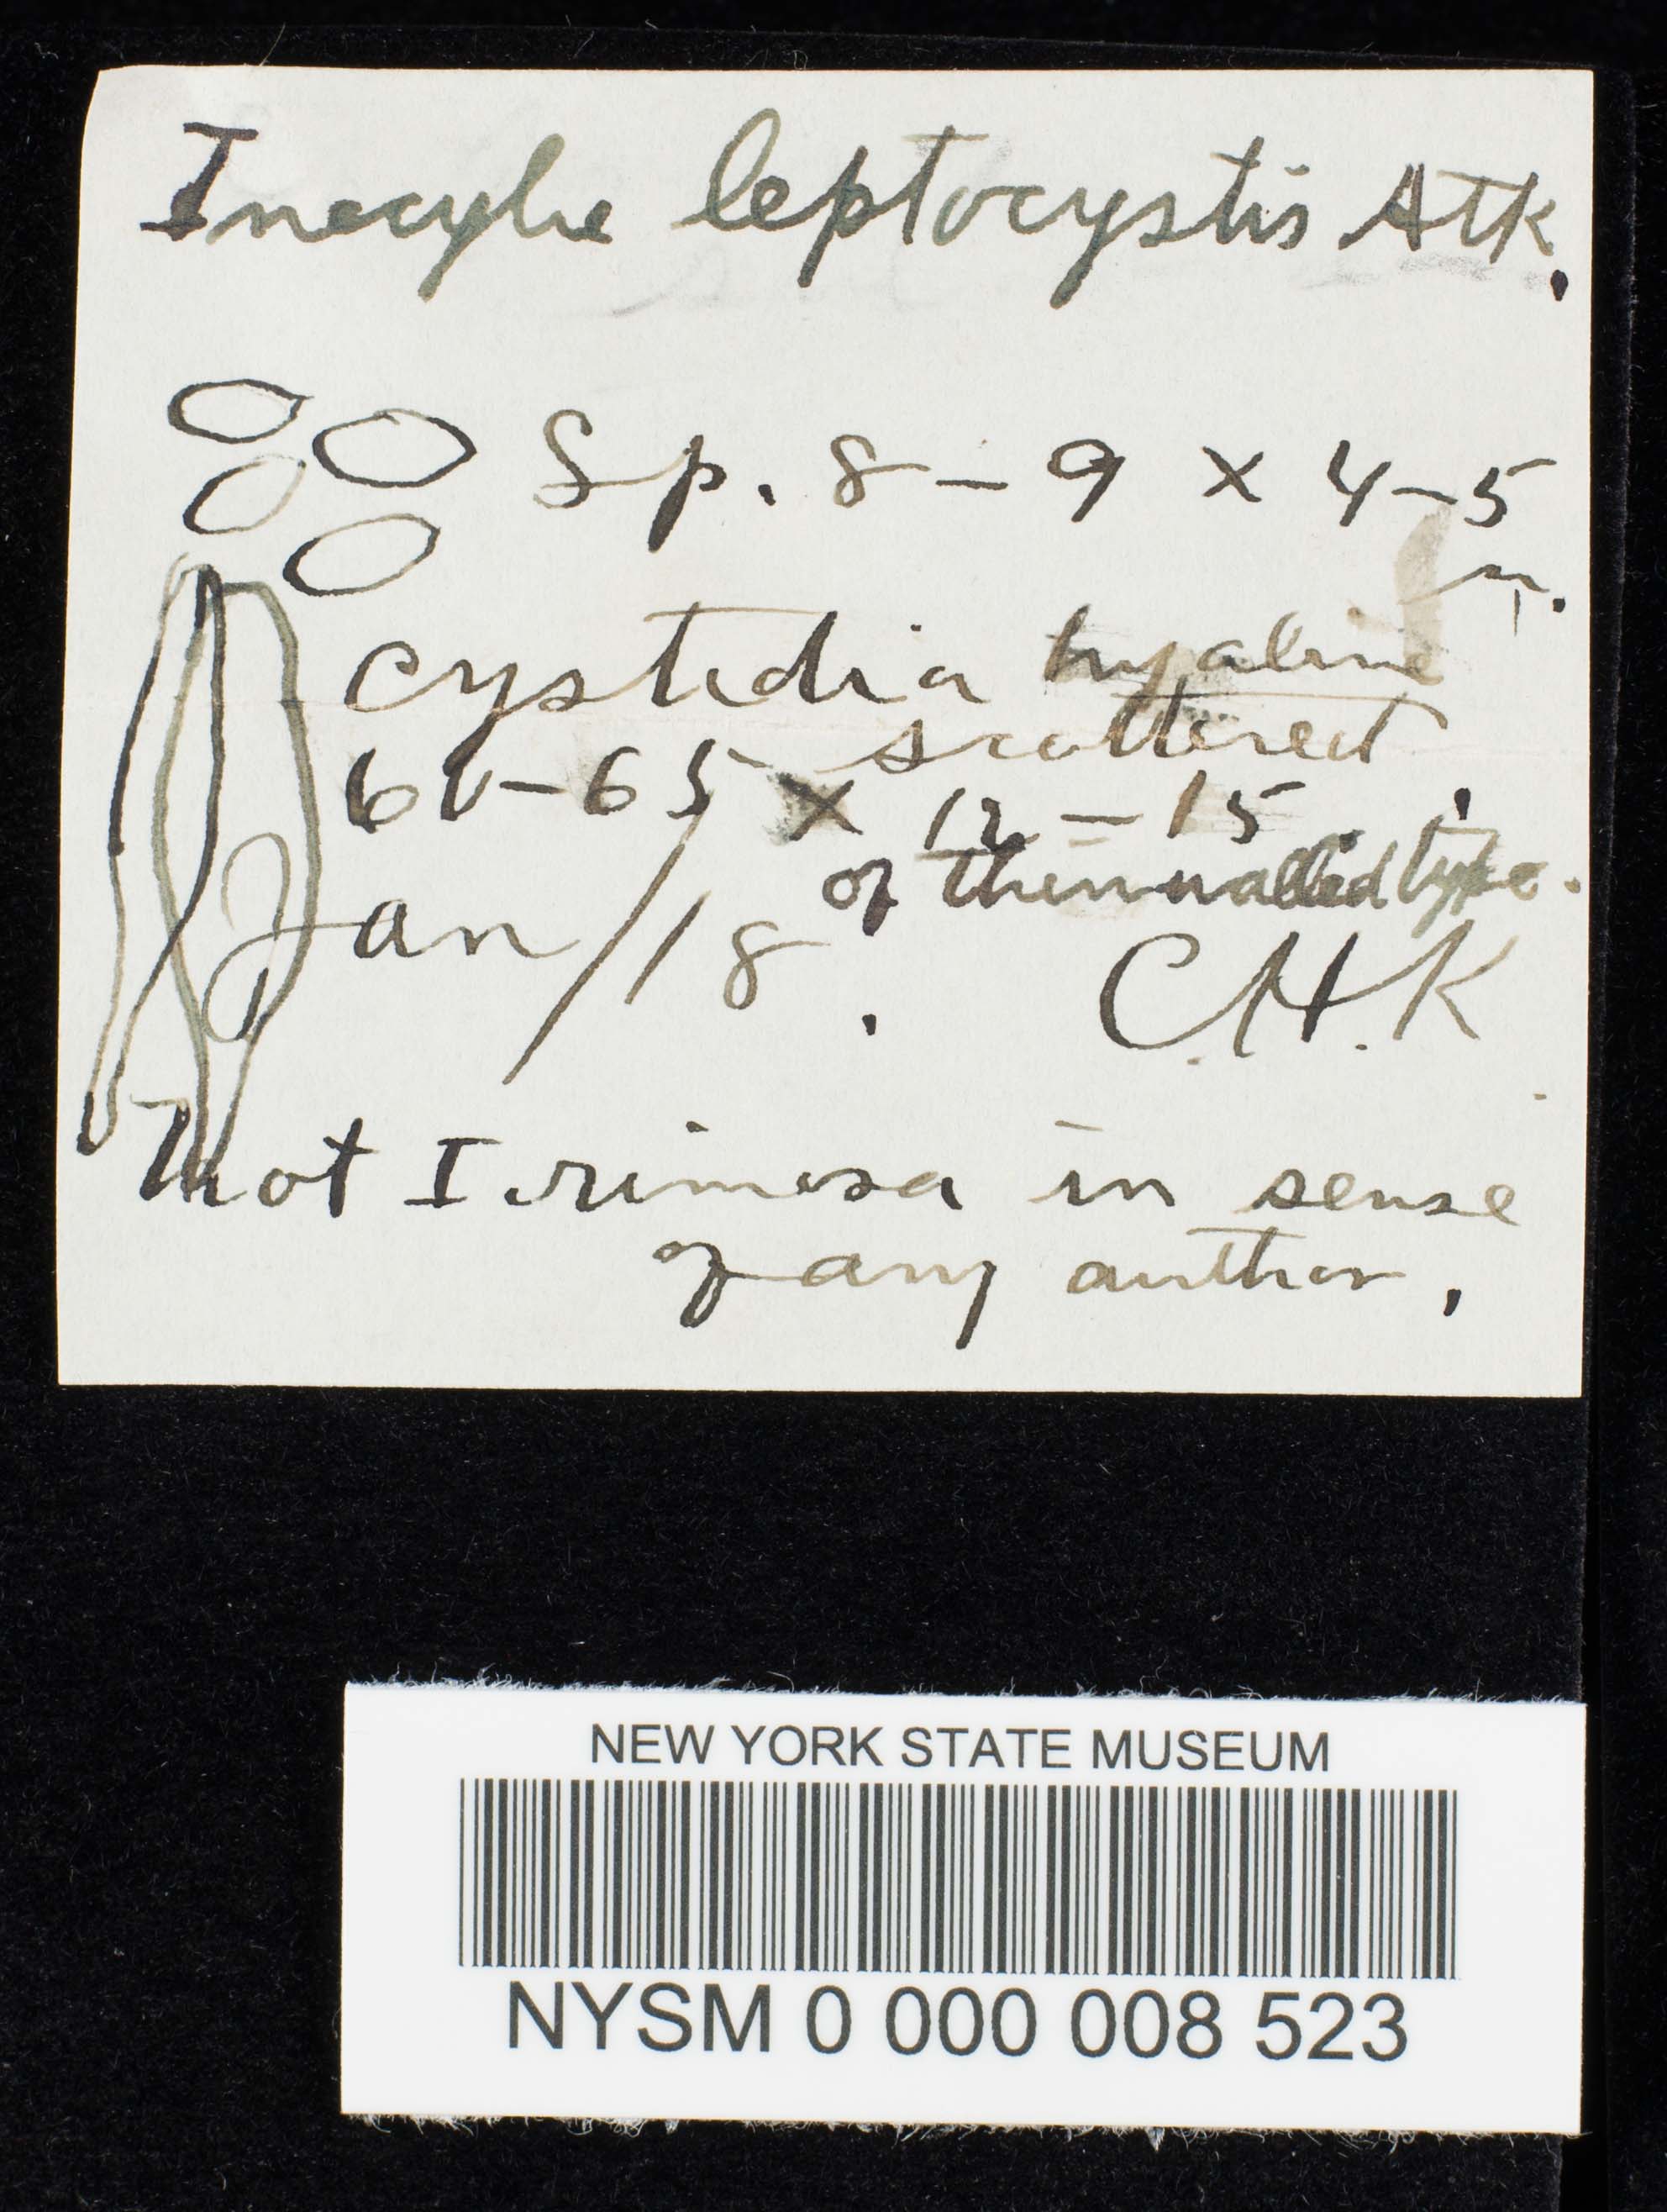 Inocybe leptocystis Atk.
Sp. 8-9 x 4-5
µ.
cystidia hyaline
scattered
60-65 x 12-15
of thin walled type.
Jan/18. C.H.K
Not I. rimosa in sense
of any author.
NEW YORK STATE MUSEUM
NYSM 0 000 008 523